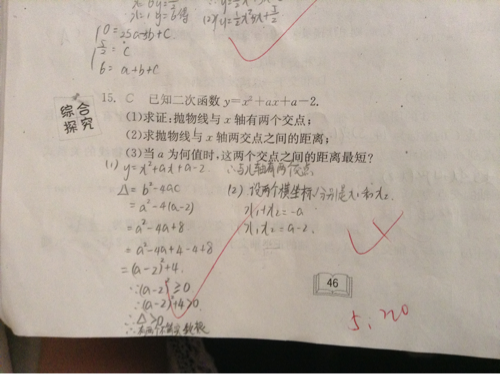 0=25a-5b+c
5/2=c
6=a+b+c
综合
探究
15. C 已知二次函数 y=x²+ax+a-2.
(1)求证:抛物线与 x 轴有两个交点;
(2)求抛物线与 x 轴两交点之间的距离;
(3)当 a 为何值时,这两个交点之间的距离最短?
(1) y=x²+ax+a-2
Δ=b²-4ac
=a²-4(a-2)
=a²-4a+8
=a²-4a+4-4+8
=(a-2)²+4
∵(a-2)²≥0
∴(a-2)²+4>0
∴Δ>0
∴与x轴有两个交点
(2) 设两个横坐标分别是x₁和x₂
x₁+x₂=-a
x₁x₂=a-2
46
5.20